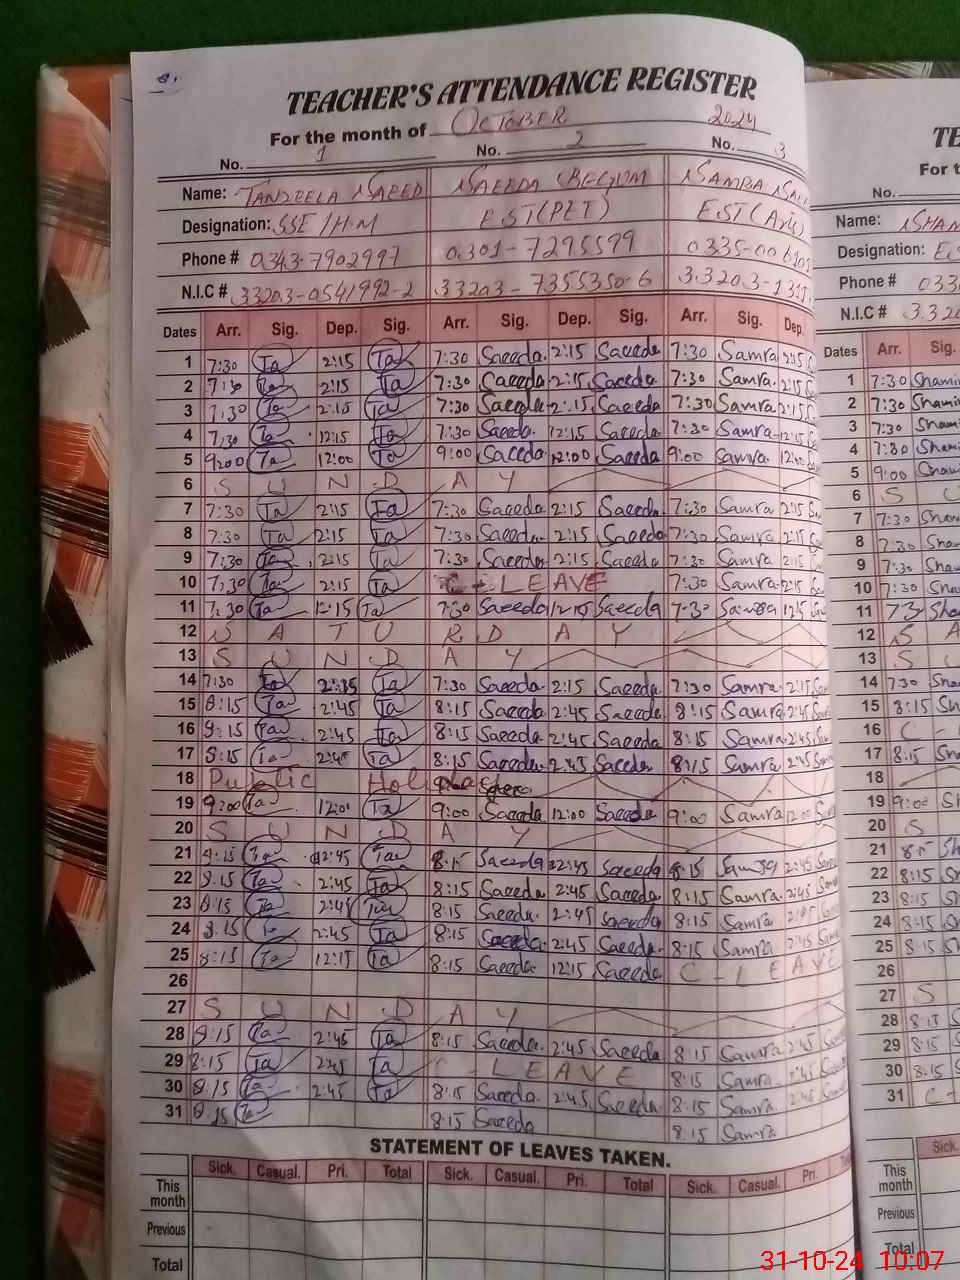 TEACHER'S ATTENDANCE REGISTER
For the month of OCTOBER 2024
No. 1 No. 2 No. 3
Name: TANZEELA SAEED SAEEDA BEGUM
Designation: SSE/H.M EST(PET)
Phone # 0343-7902997 0301-7295599
N.I.C # 33203-0541992-2 33203-7355350-6
Dates Arr. Sig. Dep. Sig. Arr. Sig. Dep. Sig. Arr. Sig. Dep.
1 7:30 Ta 2:15 Ta 7:30 Saeeda 2:15 Saeeda 7:30 Samra 2:15
2 7:30 Ta 2:15 Ta 7:30 Saeeda 2:15 Saeeda 7:30 Samra 2:15
3 7:30 Ta 2:15 Ta 7:30 Saeeda 2:15 Saeeda 7:30 Samra 2:15
4 7:30 Ta 12:15 Ta 7:30 Saeeda 12:15 Saeeda 7:30 Samra 12:15
5 9:00 Ta 12:00 Ta 9:00 Saeeda 12:00 Saeeda 9:00 Samra 12:00
6 SUNDAY
7 7:30 Ta 2:15 Ta 7:30 Saeeda 2:15 Saeeda 7:30 Samra 2:15
8 7:30 Ta 2:15 Ta 7:30 Saeeda 2:15 Saeeda 7:30 Samra 2:15
9 7:30 Ta 2:15 Ta 7:30 Saeeda 2:15 Saeeda 7:30 Samra 2:15
10 7:30 Ta 2:15 Ta C-LEAVE 7:30 Samra 2:15
11 7:30 Ta 12:15 Ta 7:30 Saeeda 12:15 Saeeda 7:30 Samra 12:15
12 SATURDAY
13 SUNDAY
14 7:30 Ta 2:15 Ta 7:30 Saeeda 2:15 Saeeda 7:30 Samra 2:15
15 8:15 Ta 2:45 Ta 8:15 Saeeda 2:45 Saeeda 8:15 Samra 2:45
16 8:15 Ta 2:45 Ta 8:15 Saeeda 2:45 Saeeda 8:15 Samra 2:45
17 8:15 Ta 2:45 Ta 8:15 Saeeda 2:45 Saeeda 8:15 Samra 2:45
18 Public Holiday
19 9:00 Ta 12:00 Ta 9:00 Saeeda 12:00 Saeeda 9:00 Samra 12:00
20 SUNDAY
21 8:15 Ta 2:45 Ta 8:15 Saeeda 2:45 Saeeda 8:15 Samra 2:45
22 8:15 Ta 2:45 Ta 8:15 Saeeda 2:45 Saeeda 8:15 Samra 2:45
23 8:15 Ta 2:45 Ta 8:15 Saeeda 2:45 Saeeda 8:15 Samra 2:45
24 8:15 Ta 2:45 Ta 8:15 Saeeda 2:45 Saeeda 8:15 Samra 2:45
25 8:15 Ta 12:15 Ta 8:15 Saeeda 12:15 Saeeda C-LEAVE
26
27 SUNDAY
28 8:15 Ta 2:45 Ta 8:15 Saeeda 2:45 Saeeda 8:15 Samra 2:45
29 8:15 Ta 2:45 Ta C-LEAVE 8:15 Samra 2:45
30 8:15 Ta 2:45 Ta 8:15 Saeeda 2:45 Saeeda 8:15 Samra 2:45
31 8:15 Ta 8:15 Saeeda 8:15 Samra
STATEMENT OF LEAVES TAKEN.
Sick. Casual. Pri. Total Sick. Casual. Pri. Total Sick. Casual. Pri.
This month
Previous
Total
No.
Name:
Designation:
Phone #
N.I.C #
Dates Arr. Sig.
1 7:30
2 7:30
3 7:30
4 7:30
5 9:00
6 S
7 7:30
8 7:30
9 7:30
10 7:30
11
12 SA
13 S
14 7:30
15 8:15
16 C-
17 8:15
18
19 9:00
20 S
21 8:15
22 8:15
23 8:15
24 8:15
25 8:15
26
27 S
28 8:15
29 8:15
30 8:15
31 C
Sick.
This month
Previous
Total
31-10-24 10:07